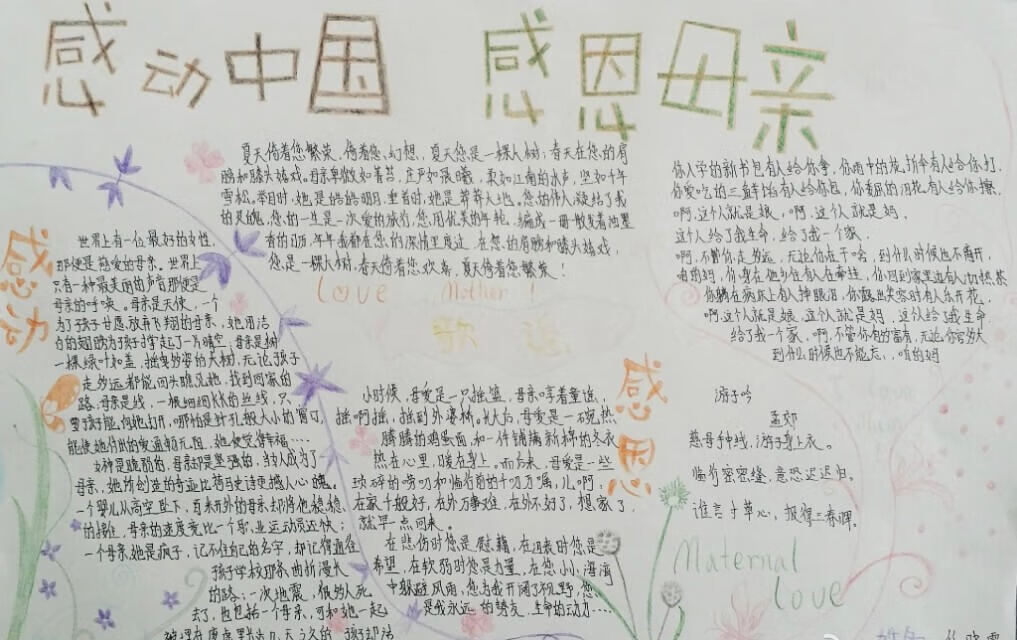 感动中国 感恩母亲
夏天倚着您繁荣，倚着您幻想，夏天您是一棵大树；春天在您的肩
膀和膝头嬉戏。母亲卑微如青苔，庄严如晨曦，柔如江南的水声，坚如千年
雪松。举目时，她是皓皓明月，垂首时，她是莽莽大地。您的伟人凝结了我
的灵魂，您的一生是一次爱的旅行，您用优美的年轮，编成一册散发着油墨
年年我都在您的深情里度过，在您的肩膀和膝头嬉戏，
您是一棵大树，春天倚着您欢喜，夏天倚着您繁荣！
Love Mother!
歌颂
感动
世界上有一位最好的女性，
那便是慈爱的母亲。世界上
只有一种最美丽的声音那便是
母亲的呼唤。母亲是天使，一个
为了孩子甘愿放弃飞翔的母亲，她用洁
白的翅膀为孩子撑起了一片晴空；母亲是树
一棵绿叶如盖，摇曳妙姿的大树，无论孩子
走多远都能回头瞧见她，找到回家的
路。母亲是线，一根细细长长的丝线，只
要孩子能向她打开，哪怕是针孔般大小的窗口，
能使她付出的爱通畅无阻，她便觉得幸福……
女种是脆弱的，母亲却是坚强的，当女人成为了
母亲，她所创造的奇迹比荷马史诗更撼人心魄。
一个婴儿从高空坠下，百米开外的母亲却将他稳稳
的接住，母亲的速度竟比一个职业运动员还快；
一个母亲她是疯子，记不住自己的名字，却记得通往
孩子学校那条曲折漫长
的路；一次地震，很多人死
去了，也包括一个母亲，可和她一起
孩子却活
小时候，母爱是一只摇篮，母亲哼着童谣，
摇啊摇，摇到外婆桥。长大后，母爱是一碗热
腾腾的鸡蛋面，和一件铺满新棉的冬衣
热在心里，暖在身上。而后来，母爱是一些
琐碎的唠叨和临行前的千叮万嘱，儿啊，
在家千般好，在外万事难，在外不好了，想家了，
就早一点回来。
在悲伤时您是慰藉，在沮丧时您是
希望，在软弱时您是力量，在您小小海湾
中躲避风雨，您为我开阔了视野，您
是我永远的挚友，生命的动力……
感恩
你入学的新书包有人给你拿，你雨中的花折伞有人给你打，
你爱吃的三鲜馅有人给你包，你委屈的泪花有人给你擦，
啊，这个人就是娘，啊，这个人就是妈，
这个人给了我生命，给了我一个家，
啊，不管你走多远，无论你在干啥，到什么时候也不离开，
咱的妈，你身在他乡住有人在牵挂，你回到家里边有人沏热茶
你躺在病床上有人掉眼泪，你露出笑容时有人乐开花，
啊，这个人就是娘，这个人就是妈，这个人给了我生命
给了我一个家，啊，不管你多富有，无论你官多大
到什么时候也不能忘，咱的妈
游子吟
孟郊
慈母手中线，游子身上衣。
临行密密缝，意恐迟迟归。
谁言寸草心，报得三春晖。
I love
Mum
Maternal
Love